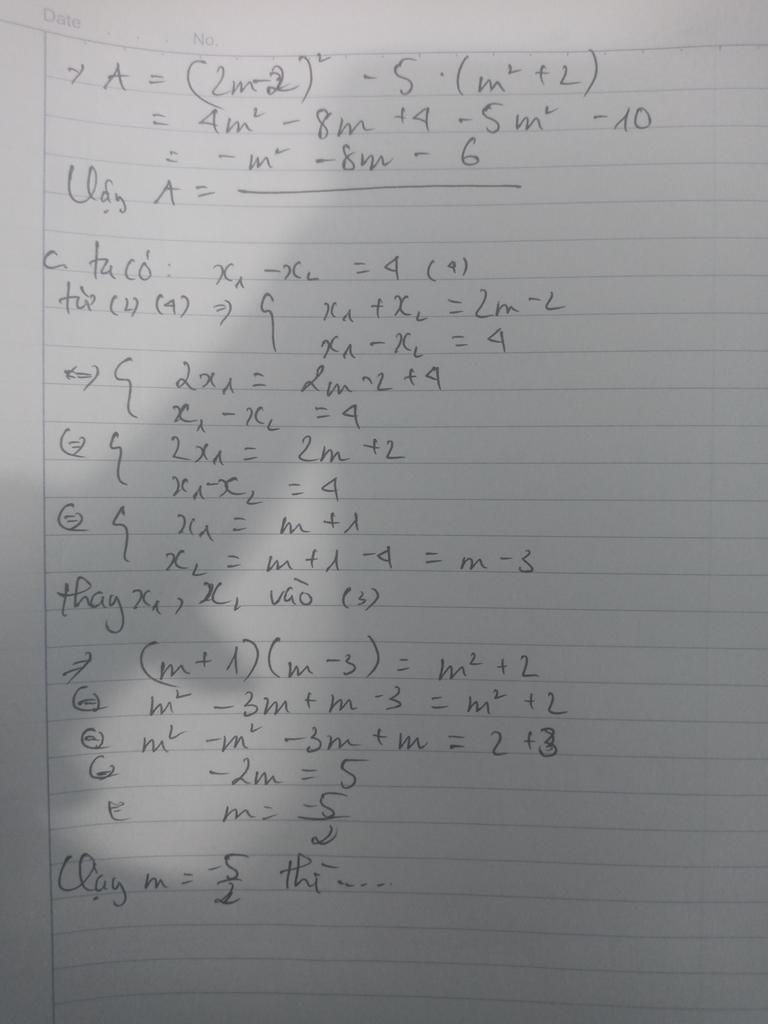 Date
No.
=> A = (2m-2)² - 5 · (m² + 2)
= 4m² - 8m + 4 - 5m² - 10
= -m² - 8m - 6
Vậy A =
c. ta có: x₁ - x₂ = 4 (4)
từ (2) (4) => { x₁ + x₂ = 2m - 2
x₁ - x₂ = 4
<=> { 2x₁ = 2m - 2 + 4
x₁ - x₂ = 4
<=> { 2x₁ = 2m + 2
x₁ - x₂ = 4
<=> { x₁ = m + 1
x₂ = m + 1 - 4 = m - 3
thay x₁, x₂ vào (3)
=> (m + 1)(m - 3) = m² + 2
<=> m² - 3m + m - 3 = m² + 2
<=> m² - m² - 3m + m = 2 + 3
<=> -2m = 5
<=> m = -5/2
Vậy m = -5/2 thì....